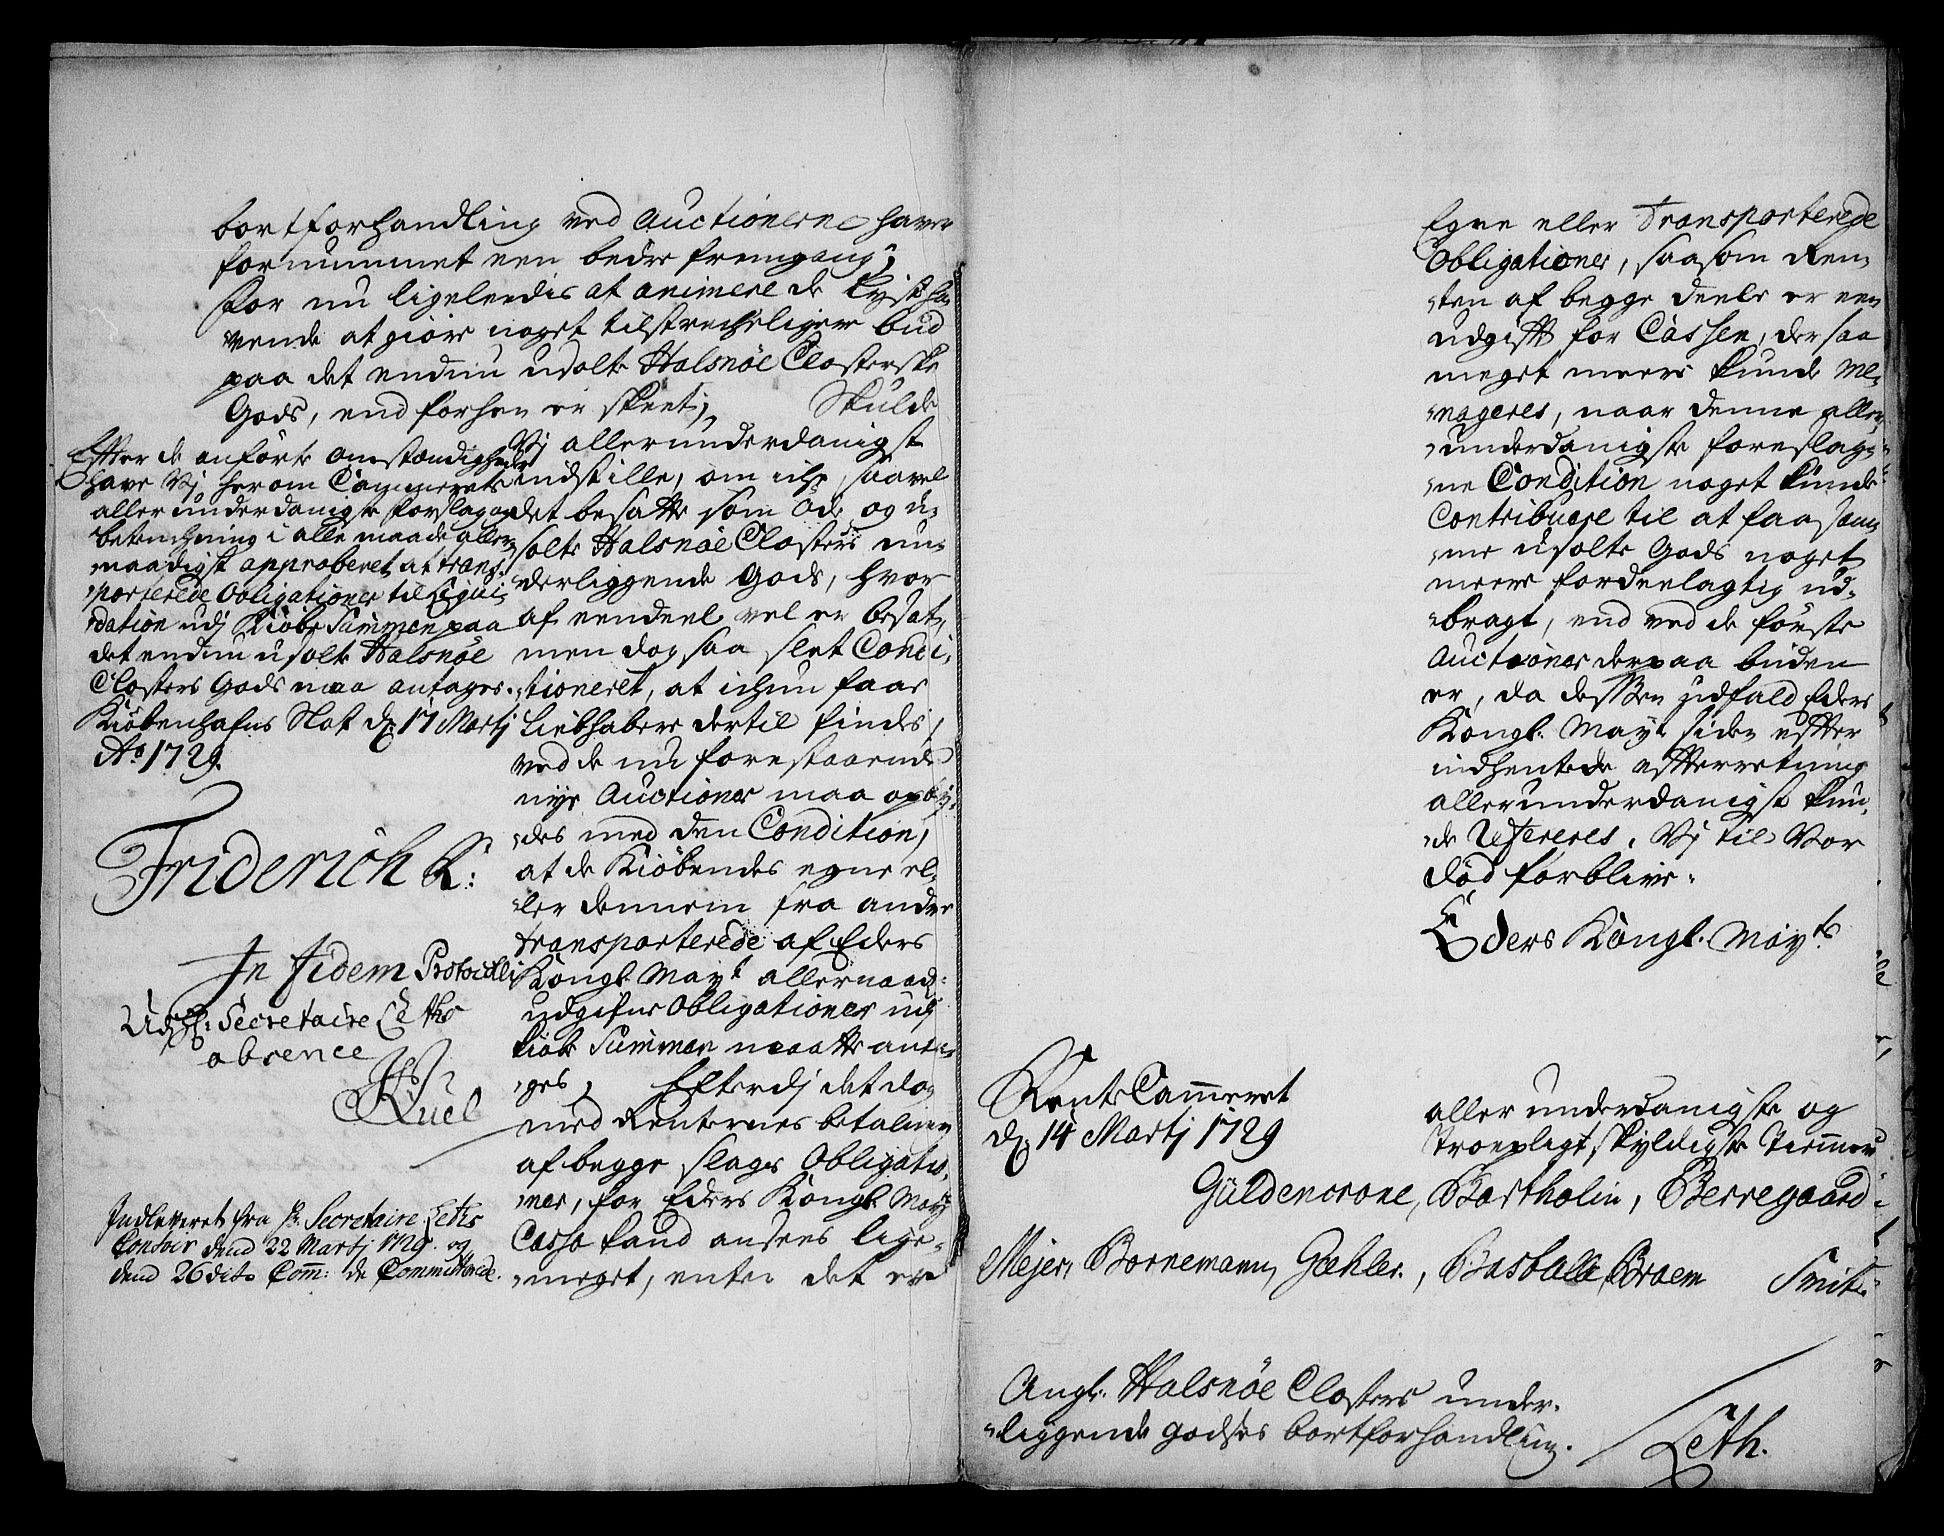 bortforhandling ved Auctionerne haver
fornummet een bedre fremgang;
For nu ligeleedis at animere de Lystha,
vende at giøre noget tilstrecheligere bud
paa det endnu usolte Halsnöe Closterske
Gods, end forhen er skeet; Skulde
Vj allerunderdanigst
indstille, om iche saavel
det besatte som öde og u,
solte Halsnöe Closters un,
derliggende Gods, hvor
af eendeel vel er besat,
men dog saa slet Condi,
tioneret, at ichun faae
Liebhabere dertil findes,
ved de nu forestaaende
nye Auctioner maa opby,
des med den Condition,
at de Kiöbendes egne el,
ler dennem fra andre
transporterede af Eders
Kongl. Mayt allernaad:
udgifne Obligationer udj
kiöbe Summen maatte anta,
ges, Efterdj det dog
med Renternes betaling
af begge slags Obligatio,
ner, for Eders Kongl. May
Cassa kand ansees lige,
meget, enten det er
Efter de anförte omstændigheder
have Vj herom Cammerets
allerunderdanigste forslag og
betenchning i alle maade aller,
naadigst approberet, at trans,
porterede Obligationer til Liqui,
dation udj Kiöbe Summen paa
det endnu usolte Halsnöe
Closters Gods maa antages.
Kiöbenhafns Slot d. 17 Martj
Ao 1729.
Friderich R:
In fidem Protocolli
Udj Hr: Secretaire Leths
absence
Kuel
Indleveret fra Hr. Secretaire Leths
Contoir dend 22 Martj 1729. og
dend 26 dito Comm: de Committerede.
Egne eller Transporterede
Obligationer, saasom Ren,
ten af begge deele er een
udgift for Cassen, der saa
meget meere kunde me,
nageres, naar denne aller,
underdanigste foreslag,
ne Condition noget kunde
Contribuere til at faa sam,
me usolte Gods noget
meere fordeelagtig ud,
bragt, end ved de förste
Auctioner derpaa buden
er, da dessen udfald Eders
Kongl. Mayt siden efter
indhentede efterretning
allerunderdanigst kun,
de Refereres. Vj til Vor
död forblive.
Eders Kongl. Mayts
Rente Cammeret
d. 14 Martj 1729
allerunderdanigste og
Troepligtskyldigste Tiennere
Güldencrone, Bartholin, Berregaard
Mejer, Bornemann, Gæhler, Basballe, Braem Smith
Angl: Halsnöe Closters under,
liggende Godses bortforhandling.
Leth.